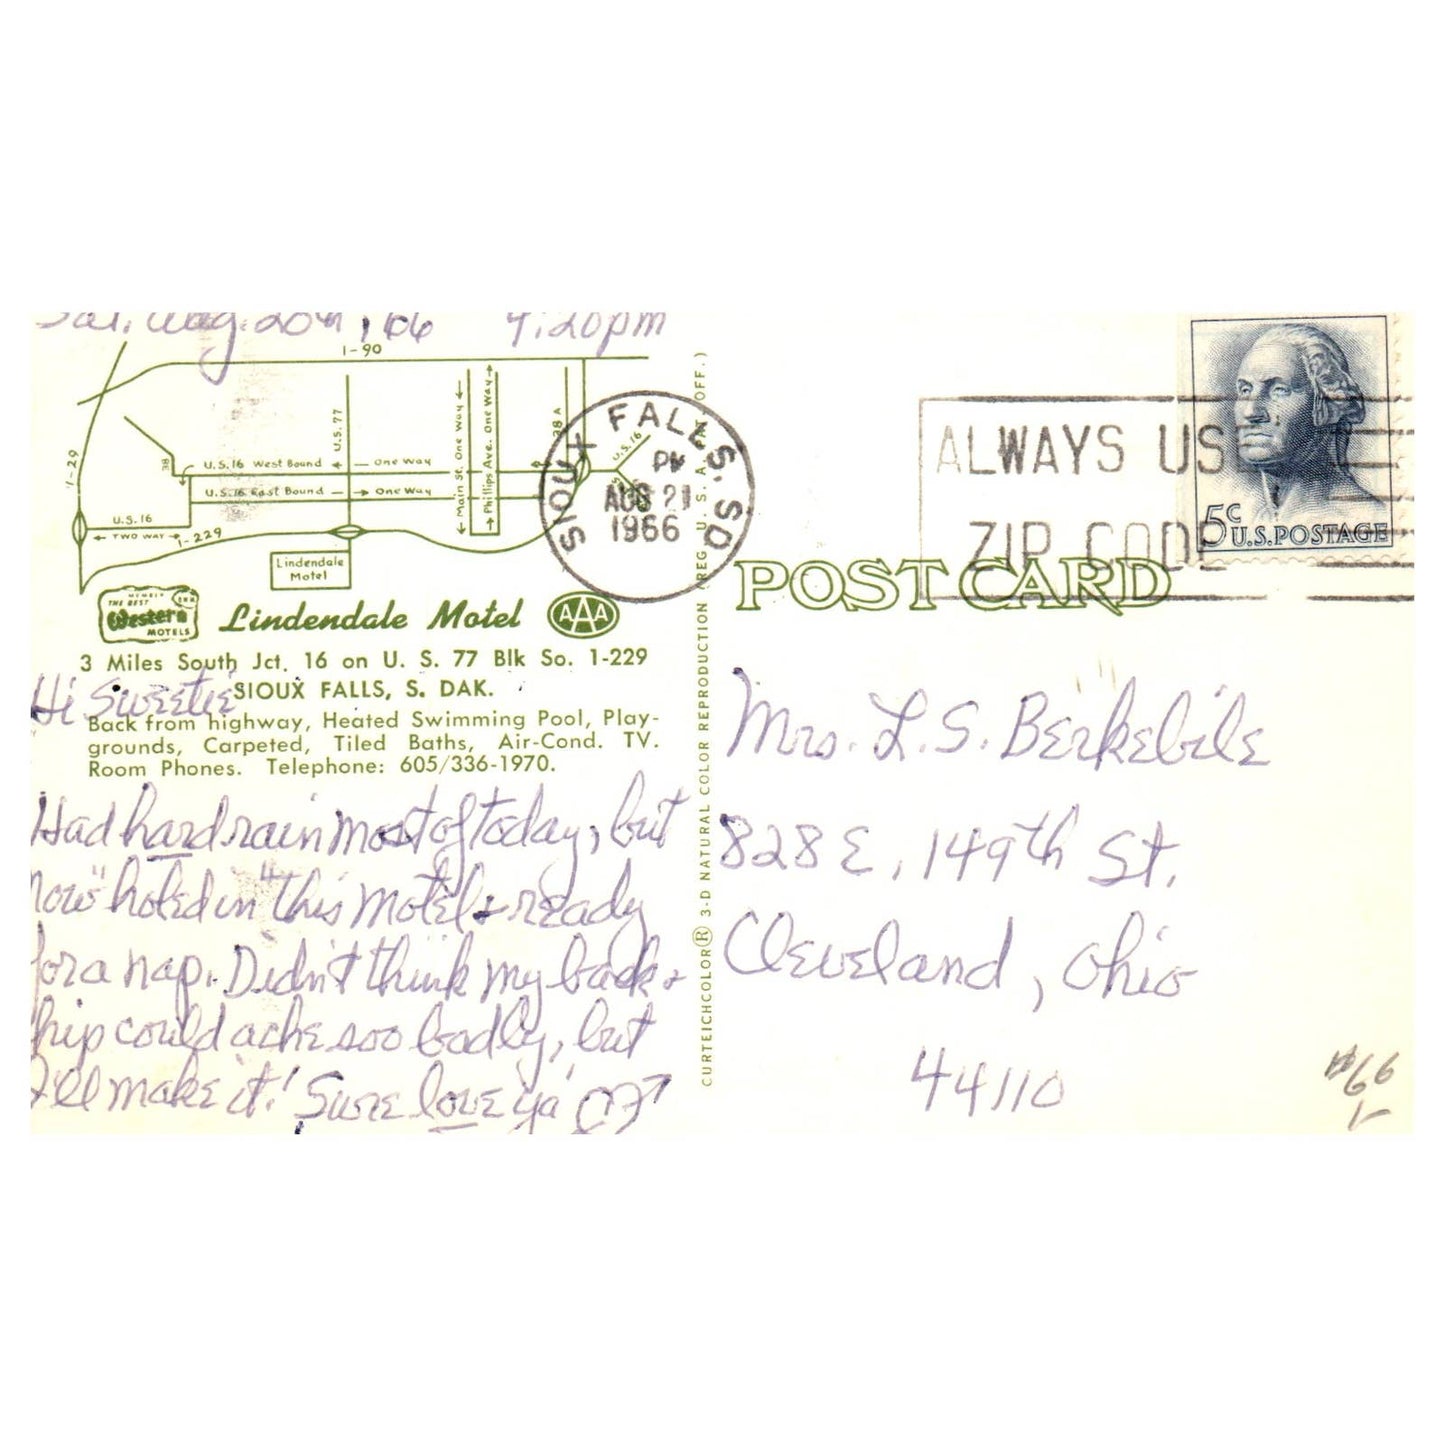 Sat. Aug. 20th, '66 4:20pm
I-90
I-29
38
U.S. 77
U.S. 16 West Bound One Way
U.S. 16 East Bound One Way
Main St. One Way
Phillips Ave. One Way
38A
U.S. 16
U.S. 16
TWO WAY
I-229
Lindendale
Motel
MEMBER
THE BEST
Western
MOTELS
Lindendale Motel
AAA
3 Miles South Jct. 16 on U. S. 77 Blk So. 1-229
SIOUX FALLS, S. DAK.
Back from highway, Heated Swimming Pool, Play-
grounds, Carpeted, Tiled Baths, Air-Cond. TV.
Room Phones. Telephone: 605/336-1970.
Hi Sweetie
Had hard rain most of today, but
now "holed in" this motel & ready
for a nap. Didn't think my back &
hip could ache soo badly, but
I'll make it! Sure love ya
CURTEICHCOLOR® 3-D NATURAL COLOR REPRODUCTION (REG. U.S.A. PAT. OFF.)
SIOUX FALLS, SD
PM
AUG 21
1966
ALWAYS USE
ZIP CODE
5c
U.S. POSTAGE
POST CARD
Mrs. L. S. Berkebile
828 E. 149th St.
Cleveland, Ohio
44110